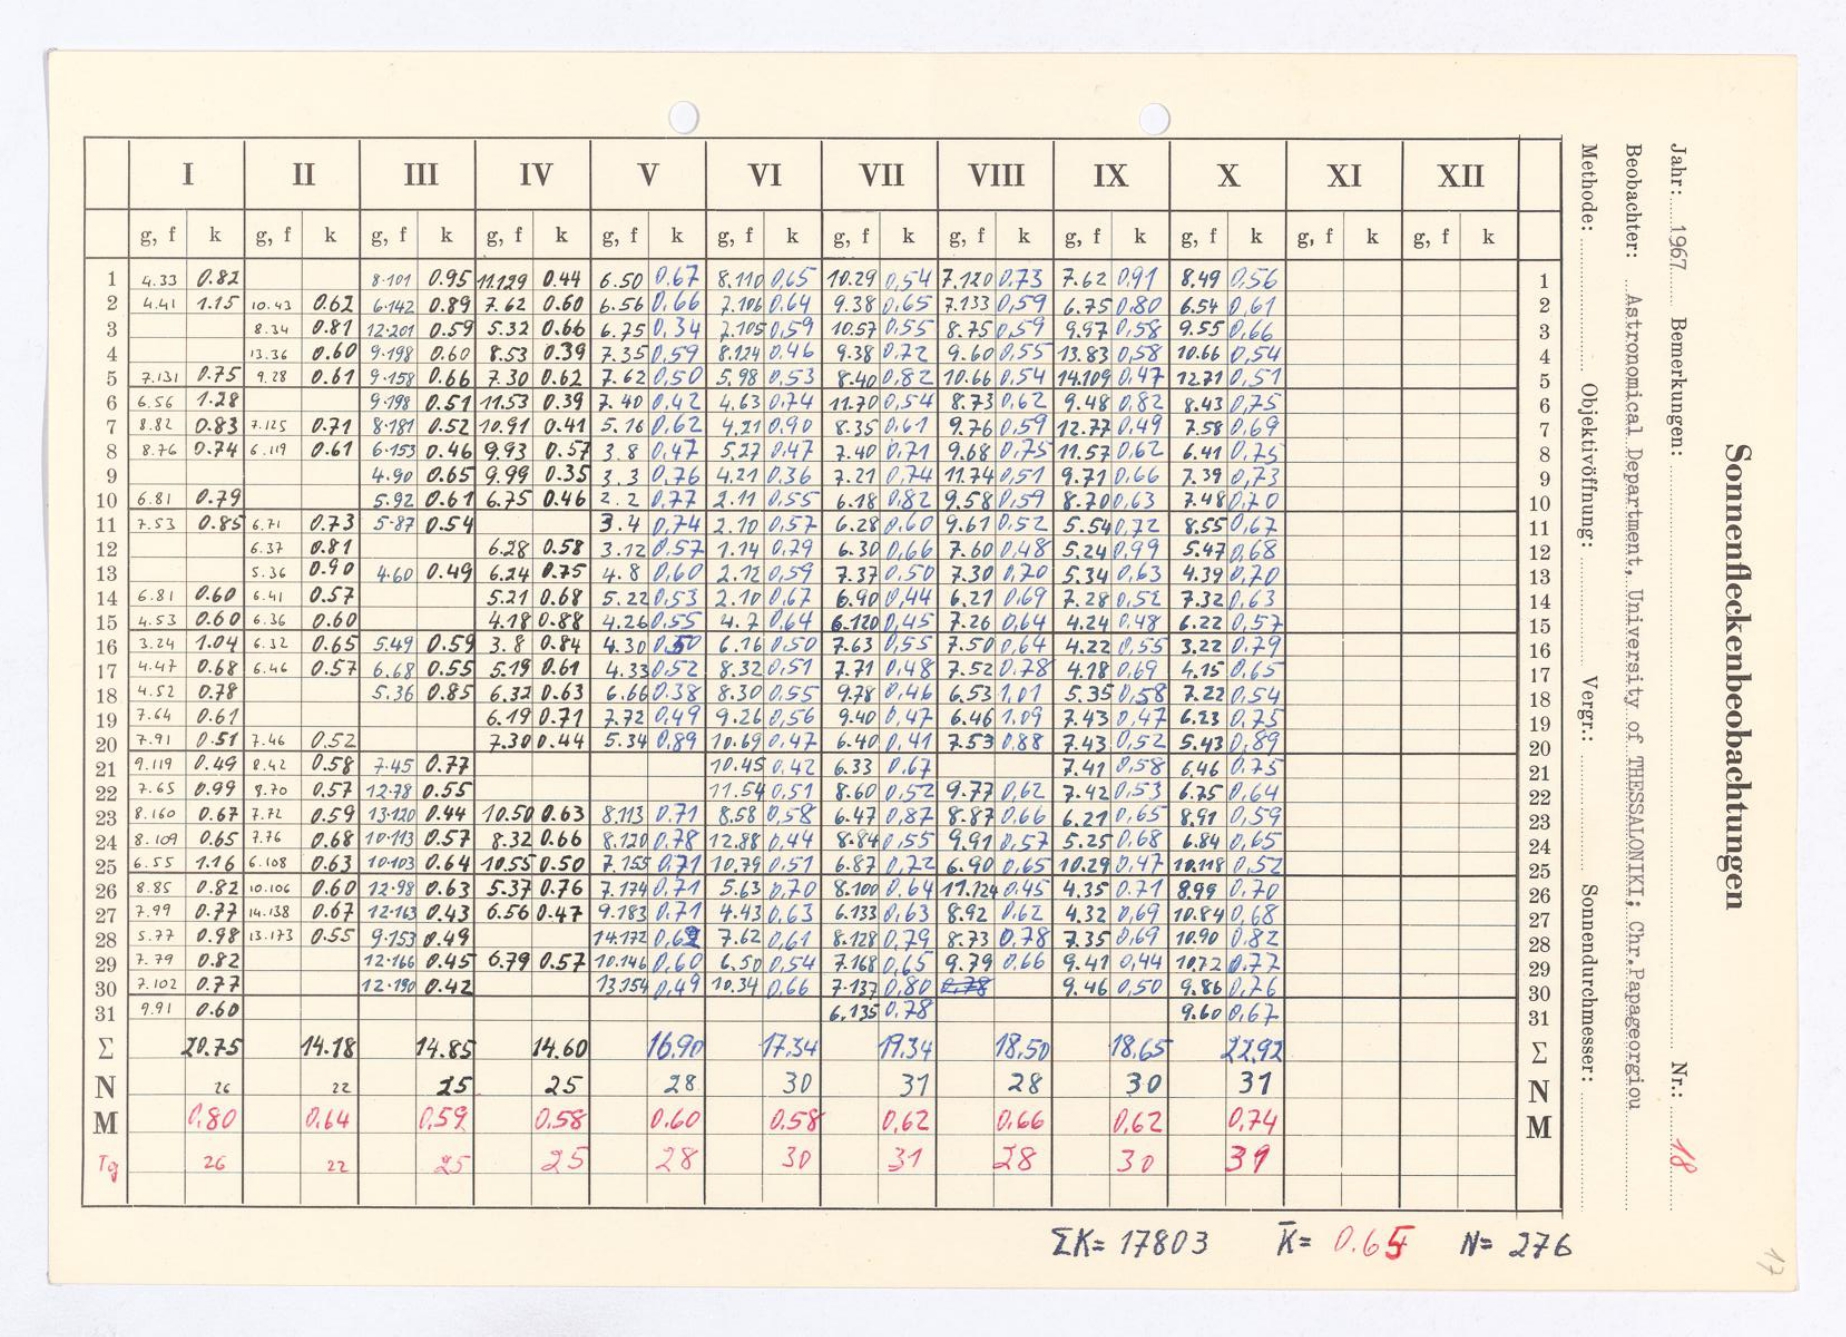 Sonnenfleckenbeobachtungen
Jahr: 1967 Bemerkungen: Nr.: 18
Beobachter: Astronomical Department, University of THESSALONIKI; Chr.Papageorgiou
Methode: Objektivöffnung: Vergr.: Sonnendurchmesser:
I II III IV V VI VII VIII IX X XI XII
g, f k g, f k g, f k g, f k g, f k g, f k g, f k g, f k g, f k g, f k g, f k g, f k
1 4.33 0.82 8.101 0.95 11.129 0.44 6.50 0.67 8.110 0,65 10.29 0,54 7.120 0,73 7.62 0,91 8.49 0,56 1
2 4.41 1.15 10.43 0.62 6.142 0.89 7.62 0.60 6.56 0,66 7.106 0,64 9.38 0,65 7.133 0,59 6.75 0,80 6.54 0,61 2
3 8.34 0.81 12.201 0.59 5.32 0.66 6.75 0,34 7.105 0,59 10.57 0,55 8.75 0,59 9.97 0,58 9.55 0,66 3
4 13.36 0.60 9.198 0.60 8.53 0.39 7.35 0,59 8.124 0,46 9.38 0,72 9.60 0,55 13.83 0,58 10.66 0,54 4
5 7.131 0.75 9.28 0.61 9.158 0.66 7.30 0.62 7.62 0,50 5.98 0,53 8.40 0,82 10.66 0,54 14.109 0,47 12.71 0,51 5
6 6.56 1.28 9.198 0.51 11.53 0.39 7.40 0,42 4.63 0,74 11.70 0,54 8.73 0,62 9.48 0,82 8.43 0,75 6
7 8.82 0.83 7.125 0.71 8.181 0.52 10.91 0.41 5.16 0,62 4.21 0,90 8.35 0,61 9.76 0,59 12.77 0,49 7.58 0,69 7
8 8.76 0.74 6.119 0.61 6.153 0.46 9.93 0.57 3.8 0,47 5.27 0,47 7.40 0,71 9.68 0,75 11.57 0,62 6.41 0,75 8
9 4.90 0.65 9.99 0.35 3.3 0,76 4.21 0.36 7.21 0,74 11.74 0,51 9.71 0,66 7.39 0,73 9
10 6.81 0.79 5.92 0.61 6.75 0.46 2.2 0,77 2.11 0,55 6.18 0,82 9.58 0,59 8.70 0,63 7.48 0,70 10
11 7.53 0.85 6.71 0.73 5.87 0.54 3.4 0,74 2.10 0,57 6.28 0,60 9.61 0,52 5.54 0,72 8.55 0,67 11
12 6.37 0.81 6.28 0.58 3.12 0,57 1.14 0,79 6.30 0,66 7.60 0,48 5.24 0,99 5.47 0,68 12
13 5.36 0.90 4.60 0.49 6.24 0.75 4.8 0,60 2.12 0,59 7.37 0,50 7.30 0,70 5.34 0,63 4.39 0,70 13
14 6.81 0.60 6.41 0.57 5.21 0.68 5.22 0,53 2.10 0,67 6.90 0,44 6.21 0,69 7.28 0,52 7.32 0,63 14
15 4.53 0.60 6.36 0.60 4.18 0.88 4.26 0,55 4.7 0,64 6.120 0,45 7.26 0,64 4.24 0,48 6.22 0,57 15
16 3.24 1.04 6.32 0.65 5.49 0.59 3.8 0.84 4.30 0,50 6.16 0,50 7.63 0,55 7.50 0,64 4.22 0,55 3.22 0,79 16
17 4.47 0.68 6.46 0.57 6.68 0.55 5.19 0.61 4.33 0,52 8.32 0,51 7.71 0,48 7.52 0,78 4.18 0,69 4.15 0,65 17
18 4.52 0.78 5.36 0.85 6.32 0.63 6.66 0.38 8.30 0,55 9.78 0,46 6.53 1,01 5.35 0,58 7.22 0,54 18
19 7.64 0.61 6.19 0.71 7.72 0,49 9.26 0,56 9.40 0,47 6.46 1.09 7.43 0,47 6.23 0,75 19
20 7.91 0.51 7.46 0.52 7.30 0.44 5.34 0,89 10.69 0,47 6.40 0,41 7.53 0,88 7.43 0,52 5.43 0,89 20
21 9.119 0.49 8.42 0.58 7.45 0.77 10.45 0,42 6.33 0,67 7.41 0,58 6.46 0.75 21
22 7.65 0.99 8.70 0.57 12.78 0.55 11.54 0,51 8.60 0,52 9.77 0,62 7.42 0,53 6.75 0,64 22
23 8.160 0.67 7.72 0.59 13.120 0.44 10.50 0.63 8.113 0,71 8.58 0,58 6.47 0,87 8.87 0,66 6.21 0,65 8.91 0,59 23
24 8.109 0.65 7.76 0.68 10.113 0.57 8.32 0.66 8.120 0,78 12.88 0,44 8.84 0,55 9.91 0,57 5.25 0,68 6.84 0,65 24
25 6.55 1.16 6.108 0.63 10.103 0.64 10.55 0.50 7.155 0,71 10.79 0,51 6.87 0,72 6.90 0,65 10.29 0,47 10.118 0,52 25
26 8.85 0.82 10.106 0.60 12.98 0.63 5.37 0.76 7.174 0,71 5.63 0,70 8.100 0,64 11.124 0.45 4.35 0.71 8.99 0,70 26
27 7.99 0.77 14.138 0.67 12.163 0.43 6.56 0.47 9.183 0,71 4.43 0,63 6.133 0,63 8.92 0,62 4.32 0,69 10.84 0,68 27
28 5.77 0.98 13.173 0.55 9.153 0.49 14.172 7.62 0,61 8.128 0,79 8.73 0,78 7.35 0,69 10.90 0,82 28
29 7.79 0.82 12.166 0.45 6.79 0.57 10.146 0,60 6.50 0,54 7.168 0,65 9.79 0,66 9.41 0,44 10.72 0,77 29
30 7.102 0.77 12.190 0.42 13.154 0,49 10.34 0,66 7.137 0,80 0,78 9.46 0,50 9.86 0,76 30
31 9.91 0.60 6.135 0,78 9.60 0,67 31
Σ 20.75 14.18 14.85 14.60 16.90 17.34 19.34 18.50 18.65 22.92 Σ
N 26 22 25 25 28 30 31 28 30 31 N
M 0.80 0.64 0,59 0.58 0.60 0.58 0,62 0.66 0,62 0.74 M
Tg 26 22 25 25 28 30 31 28 30 31
ΣK= 17803 K̄= 0.65 N= 276
17